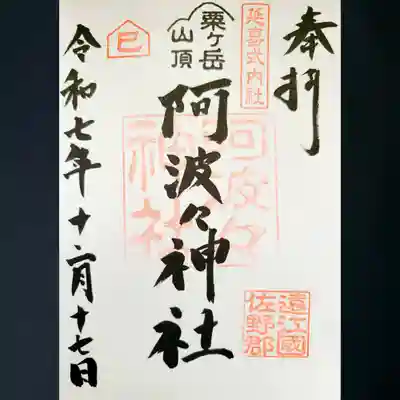 奉拝
延喜式内社
粟ヶ岳
山頂
阿波々神社
阿波々神社
遠江國
佐野郡
巳
令和七年十二月十七日